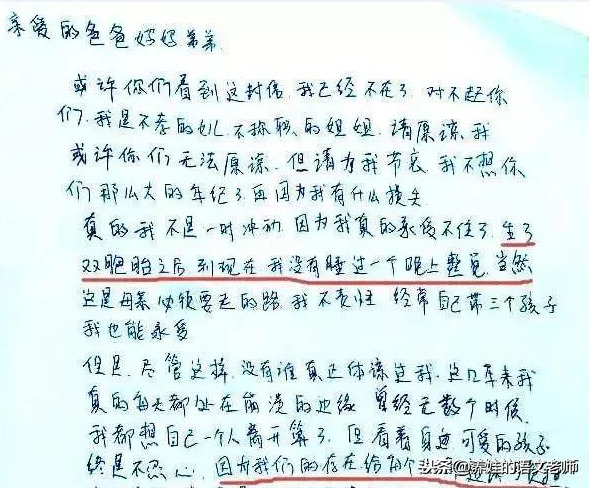 亲爱的爸爸妈妈弟弟
或许你们看到这封信,我已经不在了,对不起你
们,我是不孝的女儿,不称职的姐姐,请原谅我
或许你们无法原谅,但请为我节哀,我不想你
们那么大的年纪了再因为我有什么损失
真的我不是一时冲动,因为我真的承受不住了,生了
双胞胎之后到现在我没有睡过一个晚上整觉,当然
这是母亲必须要走的路,我不责怪,经常自己带三个孩子
我也能承受
但是,尽管这样,没有谁真正体谅过我,这几年来我
真的每天都处在崩溃的边缘,曾经无数个时候,
我都想自己一个人离开算了,但看着身边可爱的孩子
终是不忍心,因为我们的存在给
头条@满娃的语文老师